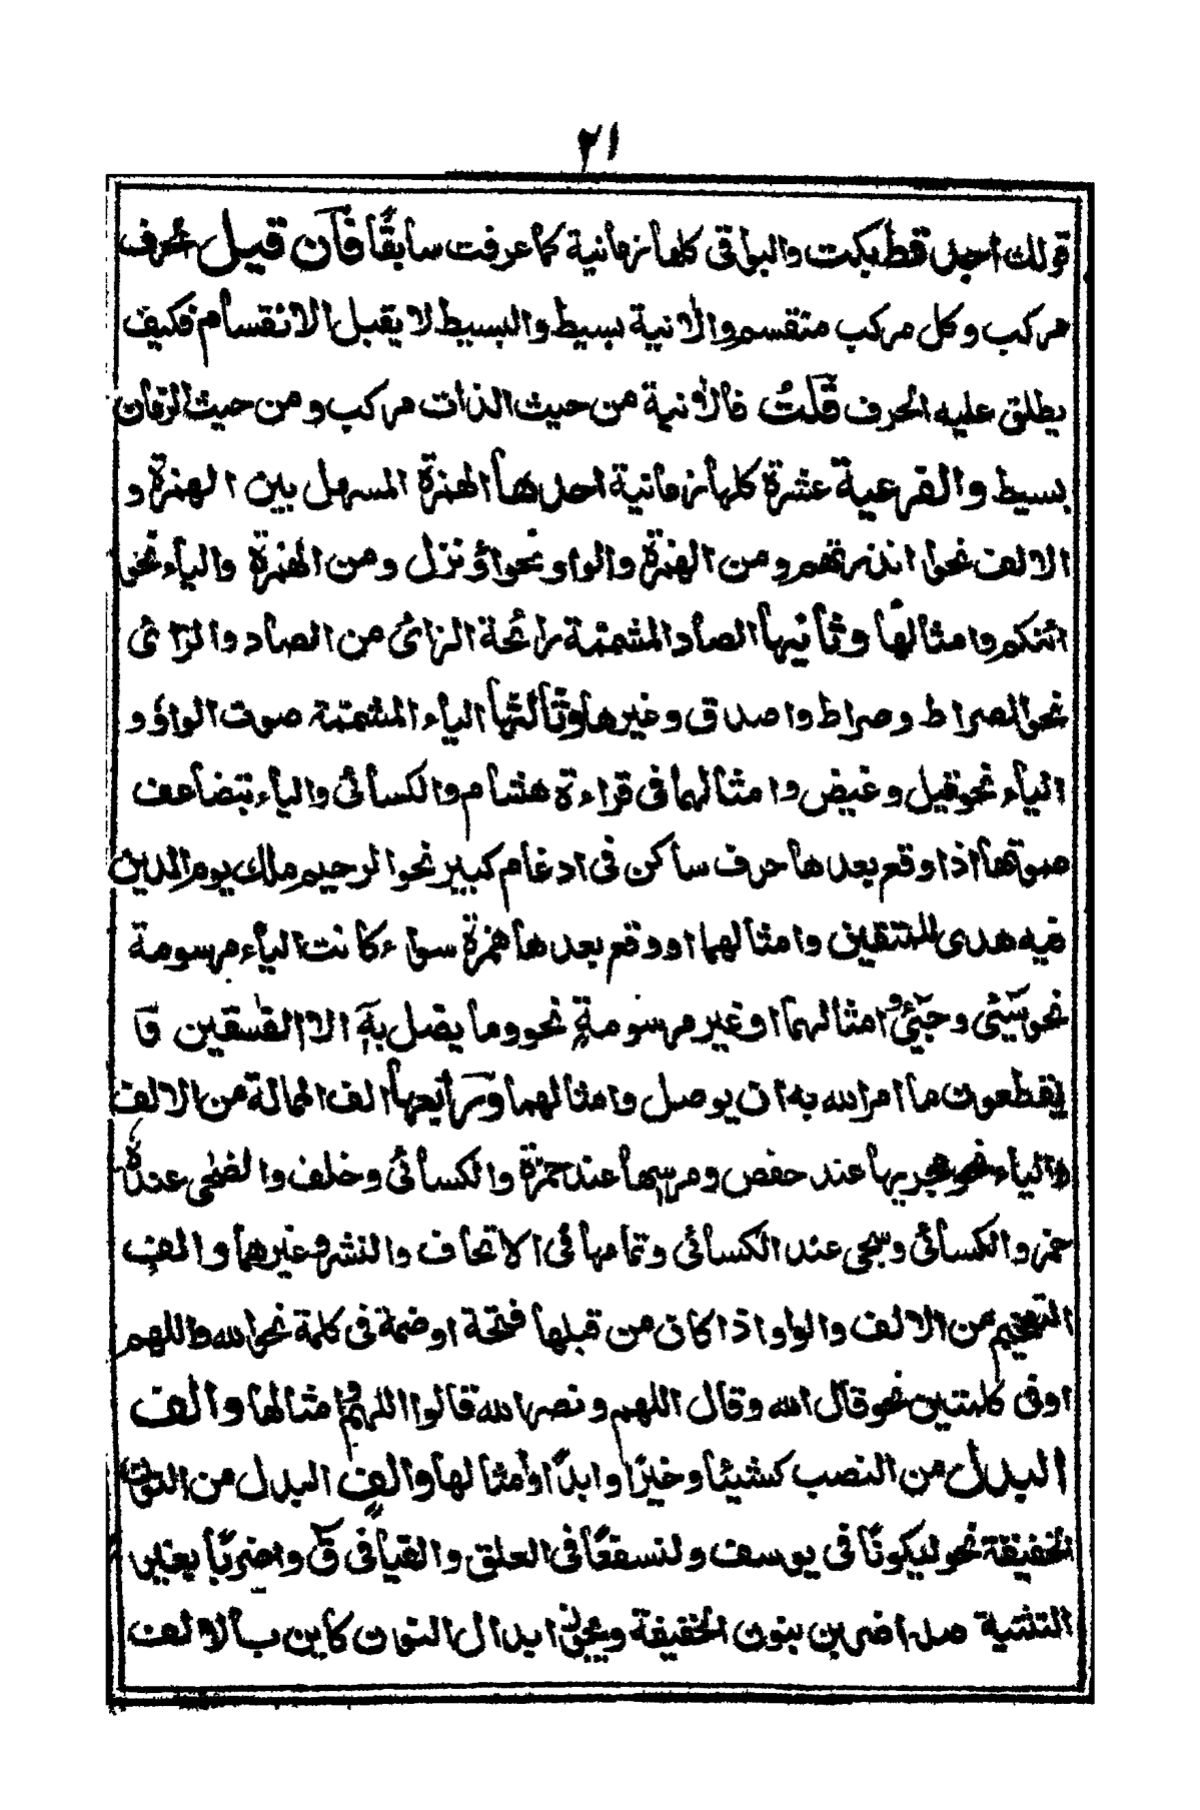 ٢١
قولك اجد قط بكت والبواقى كلها زمانية كما عرفت سابقًا فآن قيل الحرف
مركب وكل مركب منقسم والانية بسيط والبسيط لا يقبل الانقسام فكيف
يطلق عليه الحرف قلتُ فالانية من حيث الذات مركب ومن حيث الزمان
بسيط والفرعية عشرة كلها زمانية احدها الهمزة المسهل بين الهمزة و
الالف نحو اانذرتهم ومن الهمزة والواو نحو اؤنزل ومن الهمزة والياء نحو
ائنكم وامثالها وثانيها الصاد المشممة برائحة الزائ من الصاد والزائ
نحو الصراط وصراط واصدق وغيرها وثالثها الياء المشممة صوت الواؤ و
الياء نحو قيل وغيض وامثالهما فى قراءة هشام والكسائى والياء تتضاعف
صوتها اذا وقع بعدها حرف ساكن فى ادغام كبير نحو الرحيم ملك يوم الدين
فيه هدى للمتقين وامثالهما او وقع بعدها همزة سواء كانت الياء مرسومة
نحو سيئ وجيئ وامثالهما او غير مرسومةٍ نحو وما يضل بهٖٓ الا الفسقين و
يقطعون ما امر الله به ان يوصل وامثالهما ورابعها الف الممالة من الالف
والياء نحو مجريها عند حفص ومرسها عند حمزة والكسائى وخلف والضحى عند
حمزة والكسائى وسجى عند الكسائى وتمامها فى الاتحاف والنشر وغيرهما والف
التفخيم من الالف والواو اذا كان من قبلها فتحة او ضمة فى كلمة نحو الله واللهم
اوفى كلمتين نحو قال الله وقال اللهم ونصر الله قالوا اللهم وامثالها والف
البدل من النصب كشيئا وخيرًا وابدًا وامثالها والف البدل من النون
الخفيفة نحو ليكونًا فى يوسف ولنسفعًا فى العلق والقياً فى ق واضربًا بغير
التثنية صد اضربن بنون الخفيفة ويجئ ابدال النون كاين ب‍الالف